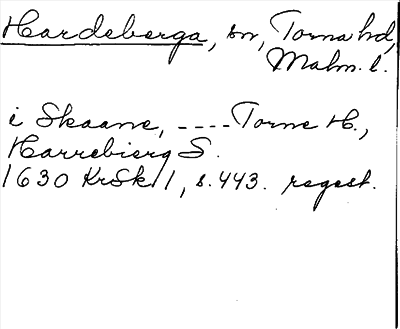 Hardeberga, sn, Torna hd,
Malm. l.
i Skaane, ---- Torne H.,
Harrebierg S.
1630 KrSk 1, s. 443. regest.